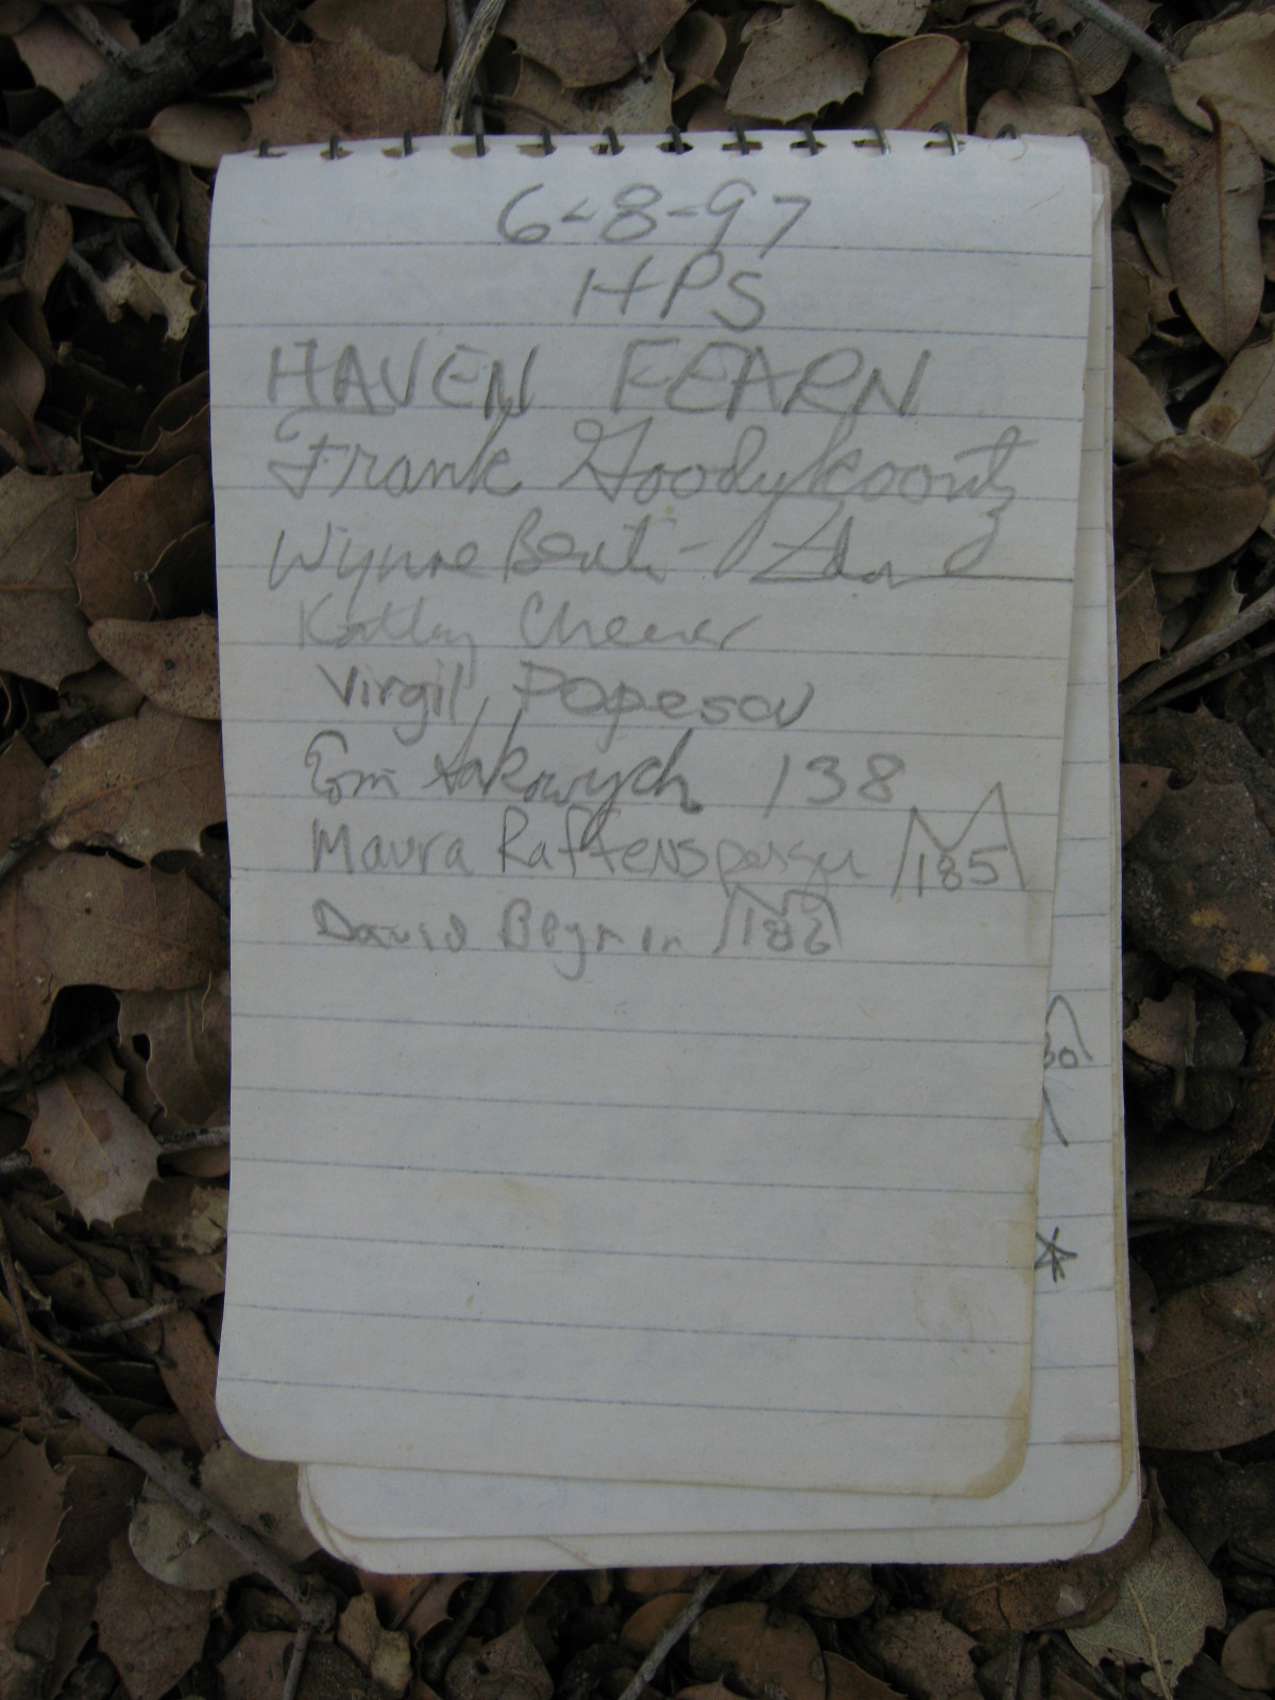 6-8-97
HPS
HAVEN FEARN
Frank Goodykoontz
Wynne Benti -
Kathy Cheever
Virgil Popescu
Tom 138
Maura Raffensperger 185
David 186
30
*